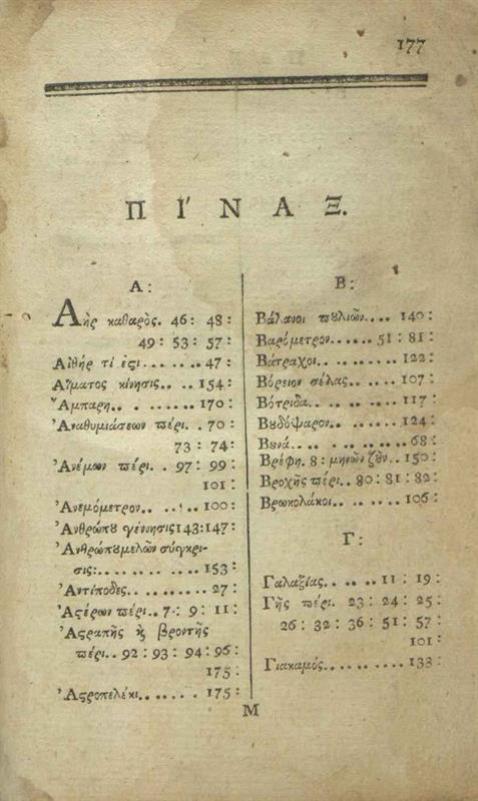 177
ΠΙ´ΝΑΞ.
Α:
Ἀὴρ καθαρὸς. 46: 48:
49: 53: 57:
Αἰθὴρ τί ἐϛι....... 47:
Αἵματος κίνησις.... 154:
Ἄμπαρη.. . ...... 170:
Ἀναθυμιάσεων περὶ. . 70:
73: 74:
Ἀνέμων περὶ. . 97: 99:
101:
Ἀνεμόμετρον....... 100:
Ἀνθρώπȣ γέννησις 143:147:
Ἀνθρώπȣ μελῶν σύγκρι-
σις:.......... 153:
Ἀντίποδες......... 27:
Ἀϛέρων περὶ.. 7: 9: 11:
Ἀϛραπῆς ϗ βροντῆς
περὶ.. 92: 93: 94: 96:
175:
Ἀϛροπελέκι....... 175:
Β:
Βάλανοι πȣλιῶν.... 140:
Βαρόμετρον...... 51: 81:
Βάτραχοι......... 122:
Βόρειον σέλας..... 107:
Βότριδα......... 117:
Βȣδόψαρον....... 124:
Βȣνά.......... 68:
Βρέφη. 8: μηνῶν ζȣν.. 150:
Βροχῆς περὶ.. 80: 81: 82:
Βρωκολάκοι....... 106:
Γ:
Γαλαξίας..... 11: 19:
Γῆς περὶ. 23: 24: 25:
26: 32: 36: 51: 57:
101:
Γιακαμός.......... 133:
Μ